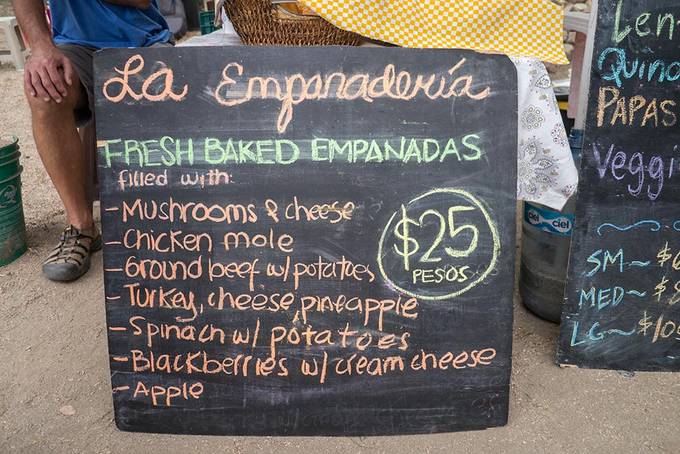 La Empanadería
FRESH BAKED EMPANADAS
filled with:
- Mushrooms & cheese
- Chicken mole
- Ground beef w/ potatoes
- Turkey, cheese, pineapple
- Spinach w/ potatoes
- Blackberries w/ cream cheese
- Apple
$25
PESOS
ciel
PAPAS
SM~
MED~
LG~